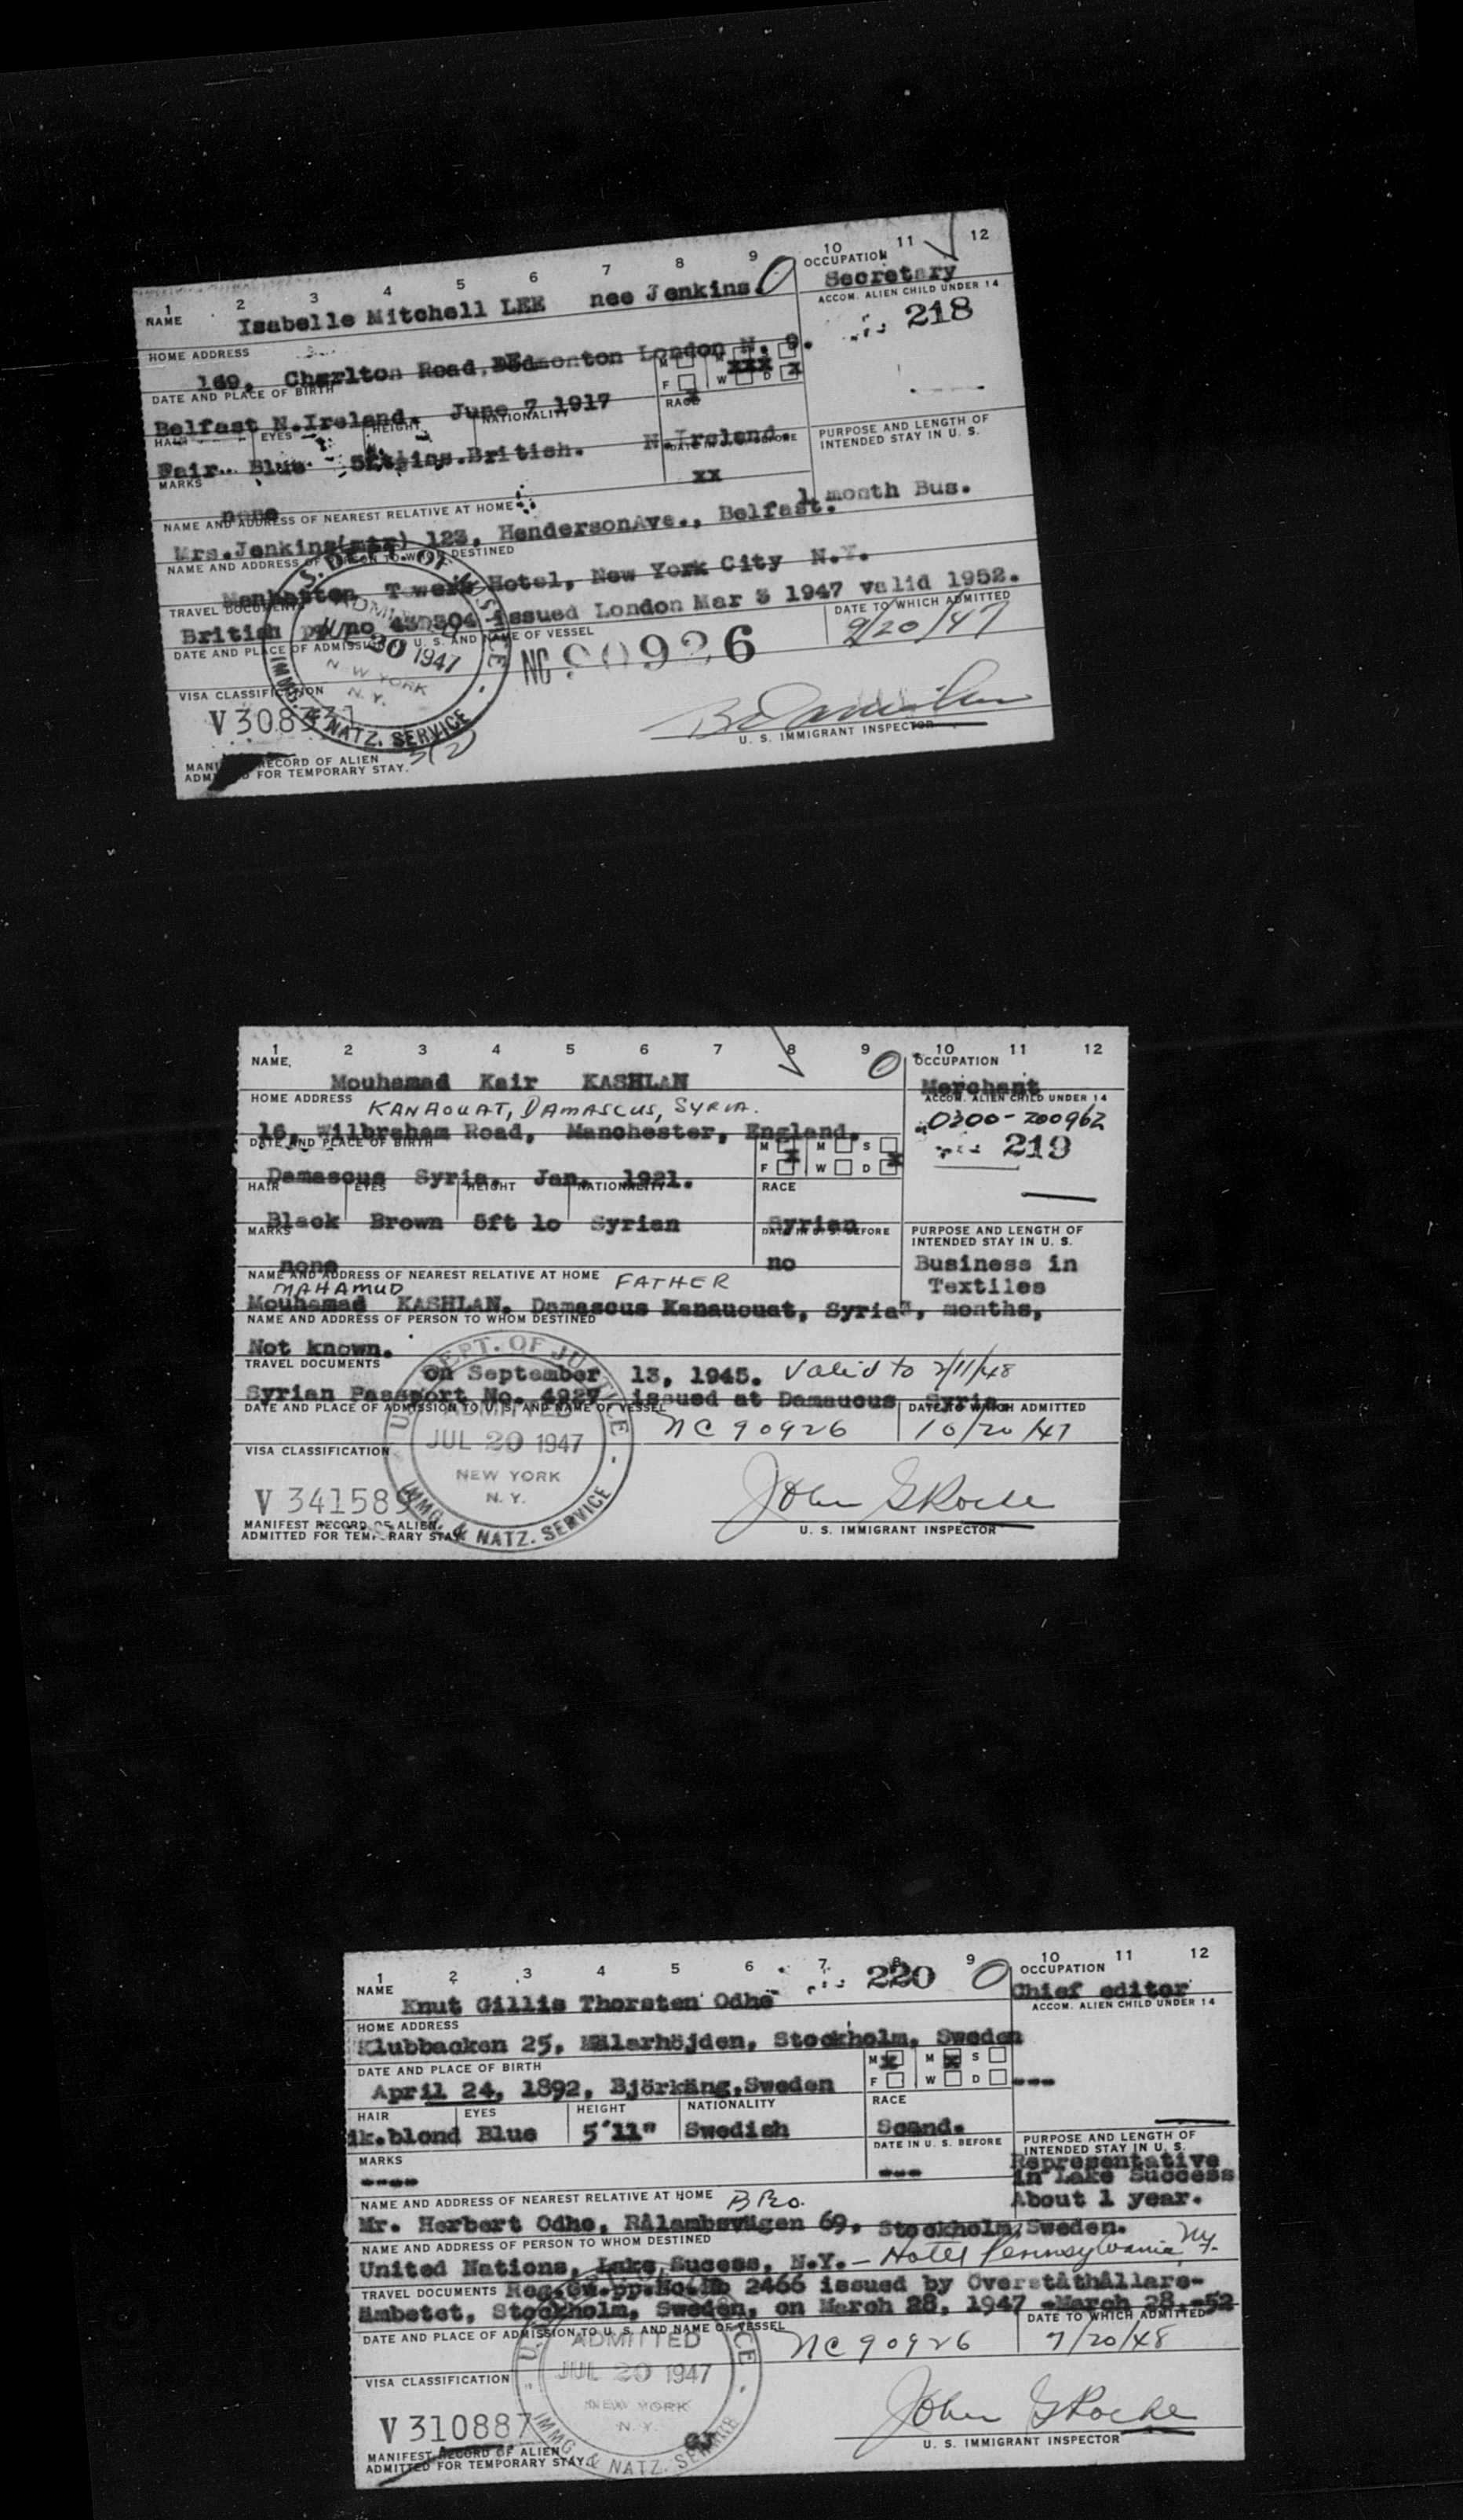 1 2 3 4 5 6 7 8 9 10 11 12
NAME Isabelle Mitchell LEE nee Jenkins. 0
OCCUPATION
Secretary
ACCOM. ALIEN CHILD UNDER 14
218
HOME ADDRESS
169, Charlton Road, Edmonton London N. 9.
DATE AND PLACE OF BIRTH
Belfast N.Ireland. June 7 1917
M M S
F W D
xxx x
x
RACE
HAIR EYES HEIGHT NATIONALITY
Fair Blue British. N.Ireland.
PURPOSE AND LENGTH OF
INTENDED STAY IN U. S.
MARKS
none
xx
NAME AND ADDRESS OF NEAREST RELATIVE AT HOME
1 month Bus.
Mrs.Jenkins(mtr) 123, HendersonAve., Belfast.
NAME AND ADDRESS OF PERSON TO WHOM DESTINED
Towers Hotel, New York City N.Y.
TRAVEL DOCUMENTS
British pp no issued London Mar 3 1947 valid 1952.
DATE AND PLACE OF ADMISSION TO U. S. AND NAME OF VESSEL
NC 90926
DATE TO WHICH ADMITTED
9/20/47
1947
NEW YORK
N. Y.
IMMG. & NATZ. SERVICE
VISA CLASSIFICATION
U. S. IMMIGRANT INSPECTOR
3(2)
MANIFEST RECORD OF ALIEN
ADMITTED FOR TEMPORARY STAY.
1 2 3 4 5 6 7 8 9 10 11 12
NAME, 0
Mouhamad Kair KASHLAN
OCCUPATION
Merchant
ACCOM. ALIEN CHILD UNDER 14
0300-200962
219
HOME ADDRESS KANAOUAT, DAMASCUS, SYRIA.
16, Wilbraham Road, Manchester, England.
DATE AND PLACE OF BIRTH
M x M S
F W D x
Damascus Syria. Jan. 1921.
HAIR EYES HEIGHT NATIONALITY RACE
Black Brown 5ft 10 Syrian Syrian
MARKS DATE IN U. S. BEFORE
PURPOSE AND LENGTH OF
INTENDED STAY IN U. S.
none no
Business in
Textiles
NAME AND ADDRESS OF NEAREST RELATIVE AT HOME FATHER
MAHAMUD
Mouhamad KASHLAN. Damascus Kanaucuat, Syria 3, months,
NAME AND ADDRESS OF PERSON TO WHOM DESTINED
Not known.
TRAVEL DOCUMENTS
on September 13, 1945. Valid to 2/11/48
Syrian Passport No. 4927 issued at Damaucus Syria.
DATE AND PLACE OF ADMISSION TO U. S. AND NAME OF VESSEL
NC 90926
DATE TO WHICH ADMITTED
10/20/47
U. S. DEPT. OF JUSTICE
ADMITTED
JUL 20 1947
NEW YORK
N. Y.
IMMG. & NATZ. SERVICE
VISA CLASSIFICATION
V 341589
John G Roche
U. S. IMMIGRANT INSPECTOR
MANIFEST RECORD OF ALIEN
ADMITTED FOR TEMPORARY STAY.
1 2 3 4 5 6 7 8 9 10 11 12
220 0
NAME
Knut Gillis Thorsten Odhe
OCCUPATION
Chief editor
ACCOM. ALIEN CHILD UNDER 14
HOME ADDRESS
Klubbacken 25, Mälarhöjden, Stockholm, Sweden
DATE AND PLACE OF BIRTH
M x M x S
F W D ---
April 24, 1892, Björkäng,Sweden
HAIR EYES HEIGHT NATIONALITY RACE
lk.blond Blue 5'11" Swedish Scand.
MARKS DATE IN U. S. BEFORE
---- ---
PURPOSE AND LENGTH OF
INTENDED STAY IN U. S.
Representative
in Lake Success
About 1 year.
NAME AND ADDRESS OF NEAREST RELATIVE AT HOME BRO.
Mr. Herbert Odhe, Rålambsvägen 69, Stockholm, Sweden.
NAME AND ADDRESS OF PERSON TO WHOM DESTINED
United Nations, Lake Sucess, N.Y. - Hotel Pennsylvania NY.
TRAVEL DOCUMENTS Reg.Sw.pp.No. 2466 issued by Överståthållare-
ämbetet, Stockholm, Sweden, on March 28, 1947 -March 28,-52
DATE AND PLACE OF ADMISSION TO U. S. AND NAME OF VESSEL
NC 90926
DATE TO WHICH ADMITTED
7/20/48
ADMITTED
JUL 20 1947
NEW YORK
N. Y.
IMMG. & NATZ. SERVICE
VISA CLASSIFICATION
V 310887
John G Roche
U. S. IMMIGRANT INSPECTOR
MANIFEST RECORD OF ALIEN
ADMITTED FOR TEMPORARY STAY.